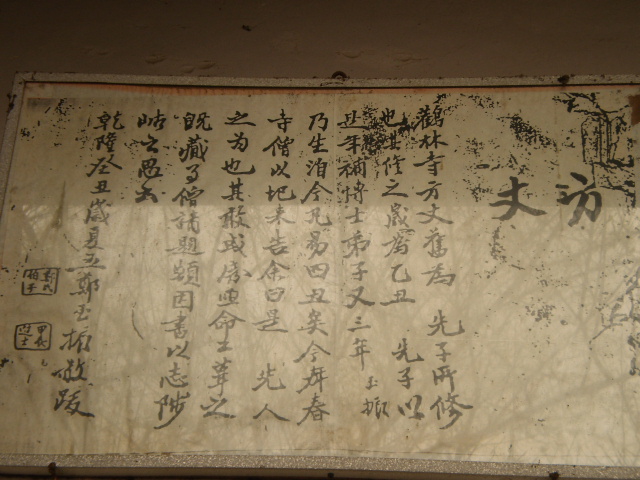 方丈
鶴林寺方丈舊為 先子所修
也其修之歲為乙丑 先子以
是年補博士弟子又三年 玉振
乃生洎今凡易四丑矣今年春
寺僧以圮来告余曰是 先人
之为也其敢 命工葺之
既蕆事僧請題額因書以志陟
岵之思云
乾隆癸丑歲夏五鄭玉振敬跋
鄭氏
甲辰
進士